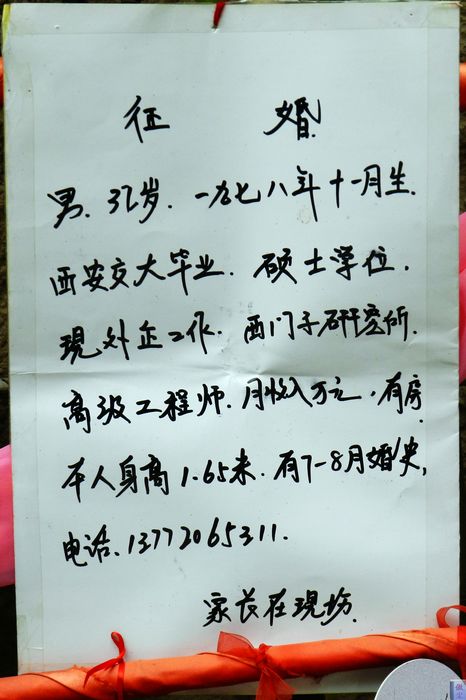 征 婚
男、32岁.一九七八年十一月生.
西安交大毕业.硕士学位.
現外企工作.西门子研究所.
高级工程师.月收入万元.有房.
本人身高1.65米.有7-8月婚史,
电话、13772065311.
家长在現场.